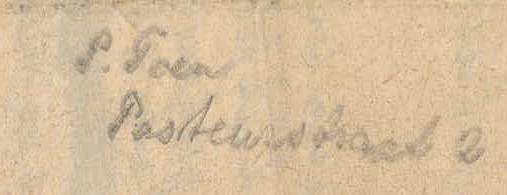 P. Toen
Pasteurstraat 2